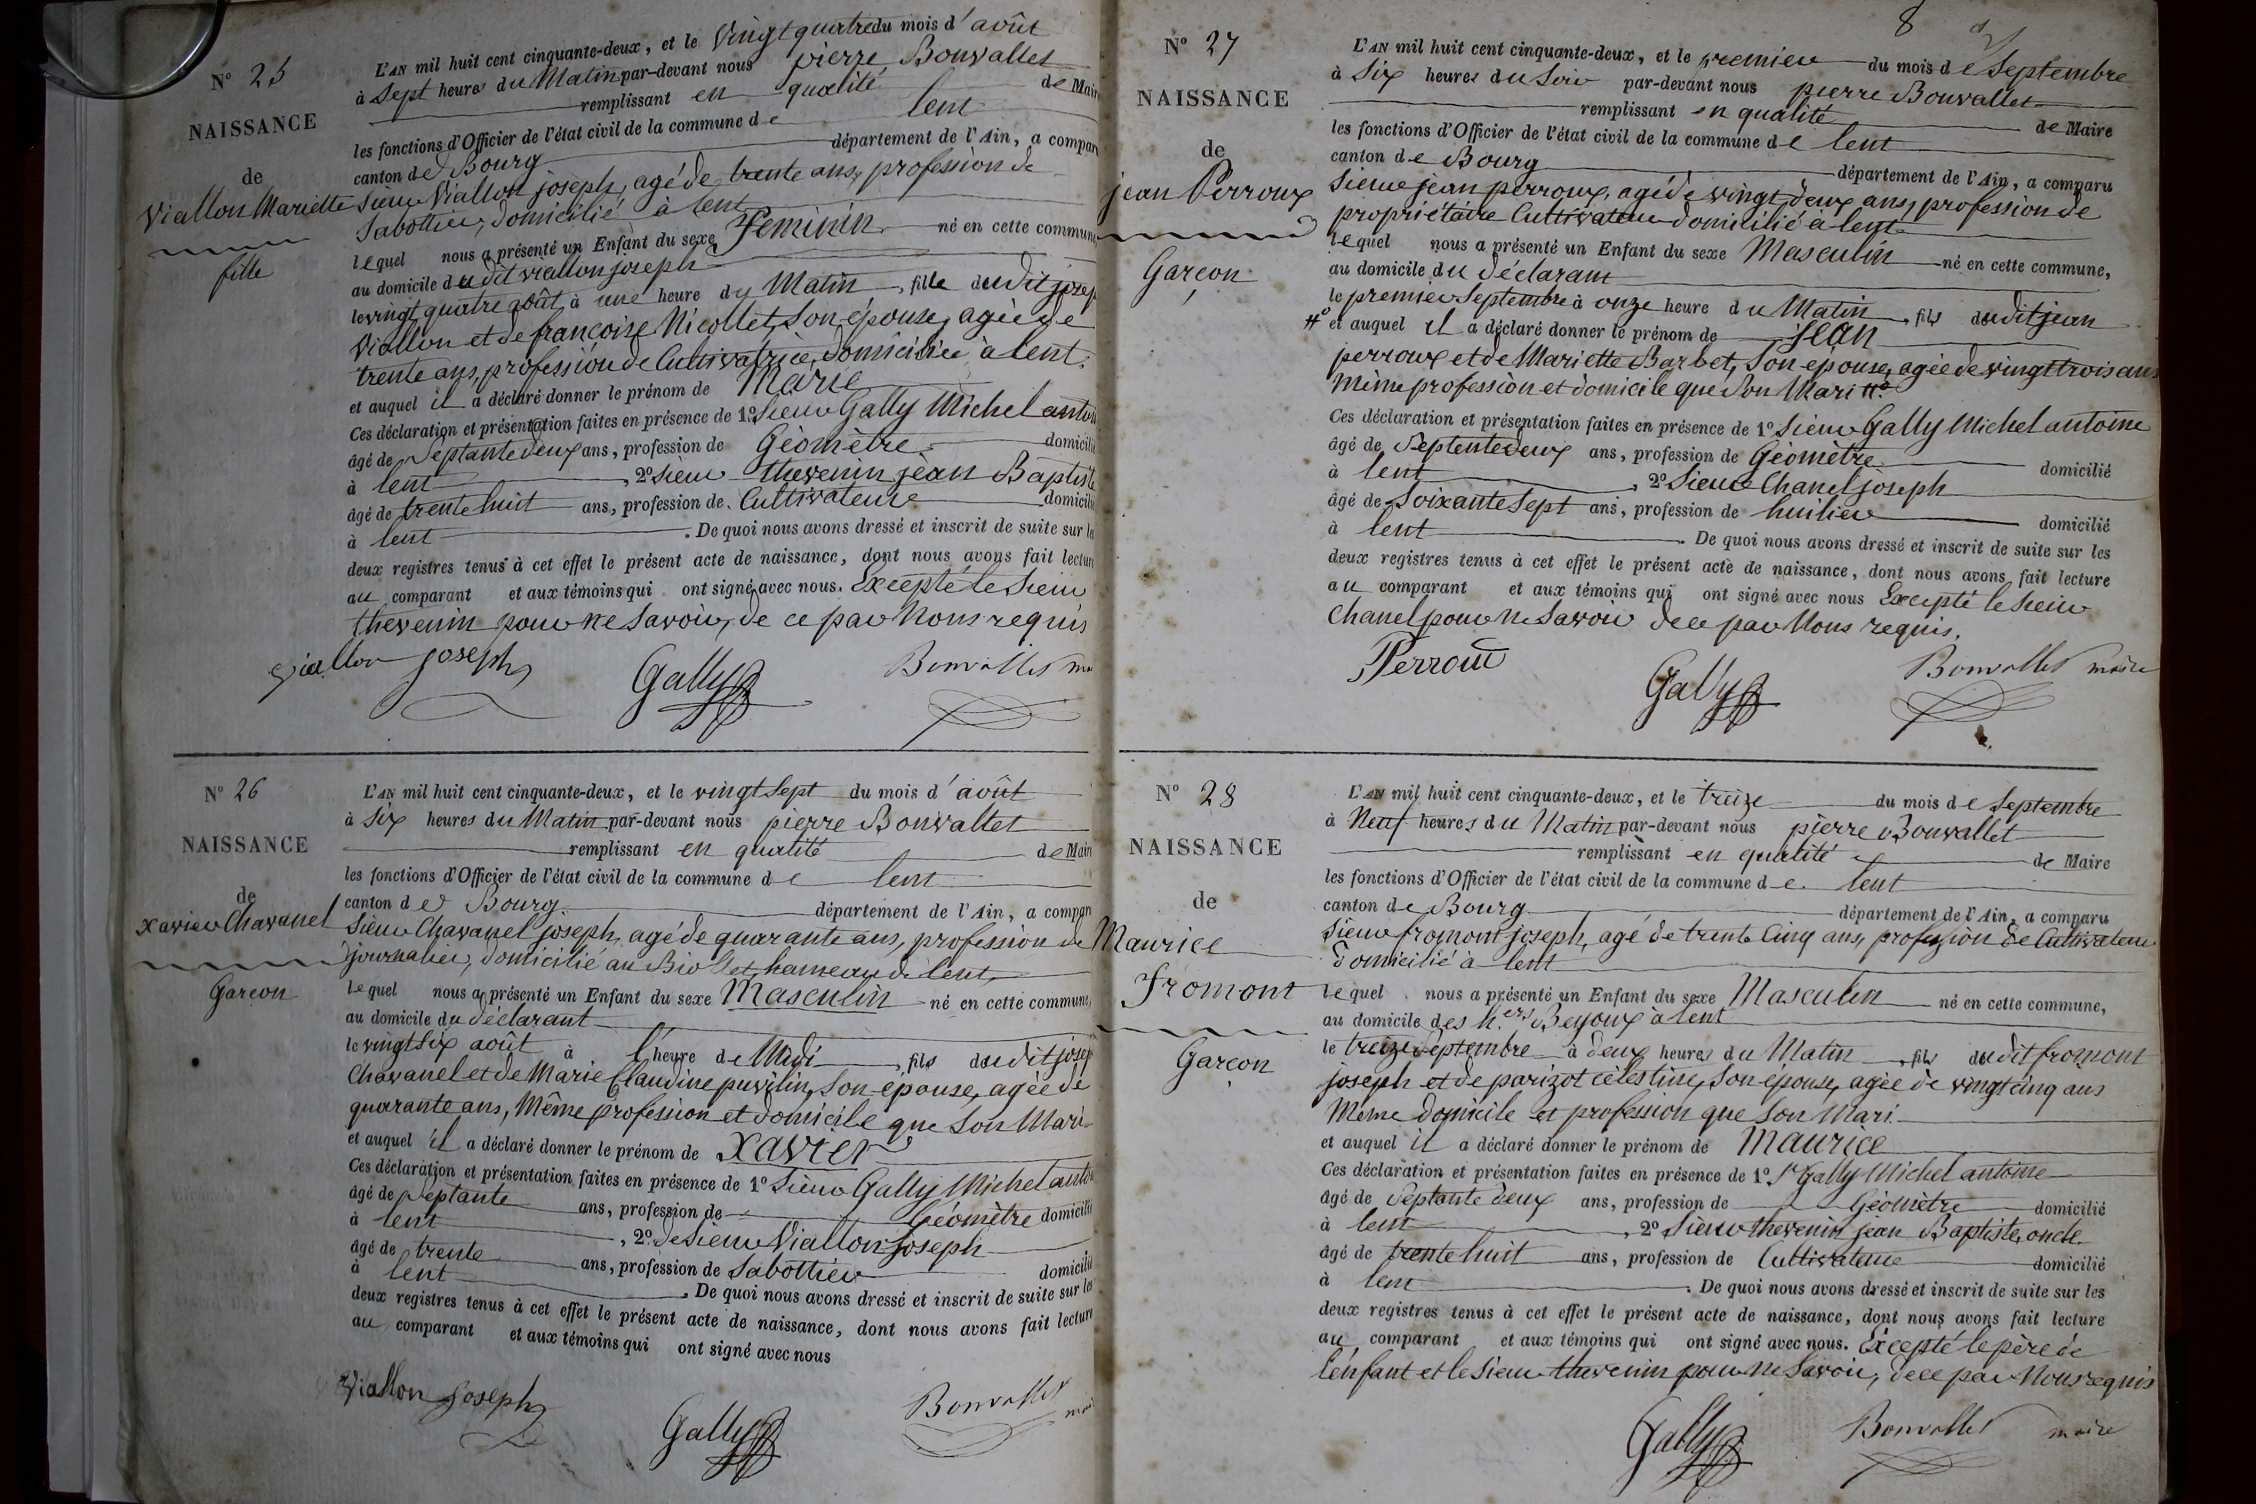 N° 25
NAISSANCE
de
Viallon Mariette
fille
L'AN mil huit cent cinquante-deux, et le vingt quatre du mois d'août
à sept heures du Matin par-devant nous pierre Bonvallet
remplissant en qualité de Mair
les fonctions d'Officier de l'état civil de la commune de lent
canton de Bourg département de l'Ain, a compar
sieur Viallon joseph, agé de trente ans, profession de
Sabottier, domicilié à lent
lequel nous a présenté un Enfant du sexe Feminin né en cette commune
au domicile du dit viallon joseph
le vingt quatre août à une heure du Matin, fille dudit josep
Viallon et de françoise Nicollet, son épouse, agée de
trente ans, profession de Cultivatrice, domiciliée à lent.
et auquel il a déclaré donner le prénom de Marie
Ces déclaration et présentation faites en présence de 1° Sieur Gally Michel antoi
âgé de Septante deux ans, profession de Géomètre domicilié
à lent, 2° Sieur thevenin jean Baptiste
âgé de trente huit ans, profession de Cultivateur domicilié
à lent. De quoi nous avons dressé et inscrit de suite sur le
deux registres tenus à cet effet le présent acte de naissance, dont nous avons fait lectur
au comparant et aux témoins qui ont signé avec nous. Excepté le sieur
thevenin pour ne savoir, de ce par Nous requis
Viallon joseph Gally Bonvallet ma
N° 26
NAISSANCE
de
xavier Chavanel
Garcon
L'AN mil huit cent cinquante-deux, et le vingt sept du mois d'août
à six heures du Matin par-devant nous pierre Bonvallet
remplissant en qualité de Mair
les fonctions d'Officier de l'état civil de la commune de lent
canton de Bourg département de l'Ain, a compar
Sieur Chavanel joseph, agé de quarante ans, profession de
journalier, domicilié au Biollet, hameau de lent,
lequel nous a présenté un Enfant du sexe Masculin né en cette commune,
au domicile du déclarant
le vingt six août à l'heure de Midi, fils dudit josep
Chavanel et de Marie Claudine puvilin, son épouse, agée de
quarante ans, Même profession et domicile que son Mari
et auquel il a déclaré donner le prénom de xavier
Ces déclaration et présentation faites en présence de 1° Sieur Gally Michel anto
âgé de Septante ans, profession de Géomètre domicilié
à lent, 2° de Sieur Viallon Joseph
âgé de trente ans, profession de Sabottier domicilié
à lent. De quoi nous avons dressé et inscrit de suite sur les
deux registres tenus à cet effet le présent acte de naissance, dont nous avons fait lecture
au comparant et aux témoins qui ont signé avec nous
Viallon Joseph Gally Bonvallet mai
8
N° 27
NAISSANCE
de
jean Perroux
Garcon
L'AN mil huit cent cinquante-deux, et le premier du mois de Septembre
à Six heures du Soir par-devant nous pierre Bonvallet
remplissant en qualité de Maire
les fonctions d'Officier de l'état civil de la commune de lent
canton de Bourg département de l'Ain, a comparu
Sieur jean perroux, agé de vingt deux ans, profession de
propriétaire Cultivateur domicilié à lent
lequel nous a présenté un Enfant du sexe Masculin né en cette commune,
au domicile du déclarant
le premier Septembre à onze heure du Matin, fils dudit jean
et auquel il a déclaré donner le prénom de jean
perroux et de Mariette Barbet, son épouse, agée de vingt trois ans
Même profession et domicile que Son Mari
Ces déclaration et présentation faites en présence de 1° Sieur Gally Michel antoine
âgé de Septente deux ans, profession de Géomètre domicilié
à lent, 2° Sieur Chanel joseph
âgé de Soixante sept ans, profession de huilier domicilié
à lent. De quoi nous avons dressé et inscrit de suite sur les
deux registres tenus à cet effet le présent acte de naissance, dont nous avons fait lecture
au comparant et aux témoins qui ont signé avec nous Excepté le sieur
Chanel pour ne savoir de ce par Nous requis.
Perroux Gally Bonvallet maire
N° 28
NAISSANCE
de
Maurice
Fromont
Garcon
L'AN mil huit cent cinquante-deux, et le treize du mois de Septembre
à Neuf heures du Matin par-devant nous pierre Bonvallet
remplissant en qualité de Maire
les fonctions d'Officier de l'état civil de la commune de lent
canton de Bourg département de l'Ain, a comparu
Sieur fromont joseph, agé de trente Cinq ans, profession de Cultivateur
domicilié à lent
lequel nous a présenté un Enfant du sexe Masculin né en cette commune,
au domicile des h.ers Beyoux à lent
le treize Septembre à deux heures du Matin, fils dudit fromont
joseph et de parizot célestine, son épouse, agée de vingt cinq ans
Même domicile et profession que son Mari
et auquel il a déclaré donner le prénom de Maurice
Ces déclaration et présentation faites en présence de 1° Sr Gally Michel antoine
âgé de Septante deux ans, profession de Géomètre domicilié
à lent, 2° Sieur thevenin jean Baptiste, oncle
âgé de trente huit ans, profession de Cultivateur domicilié
à lent. De quoi nous avons dressé et inscrit de suite sur les
deux registres tenus à cet effet le présent acte de naissance, dont nous avons fait lecture
au comparant et aux témoins qui ont signé avec nous. Excepté le père de
l'enfant et le sieur thevenin pour ne savoir, de ce par Nous requis
Gally Bonvallet maire